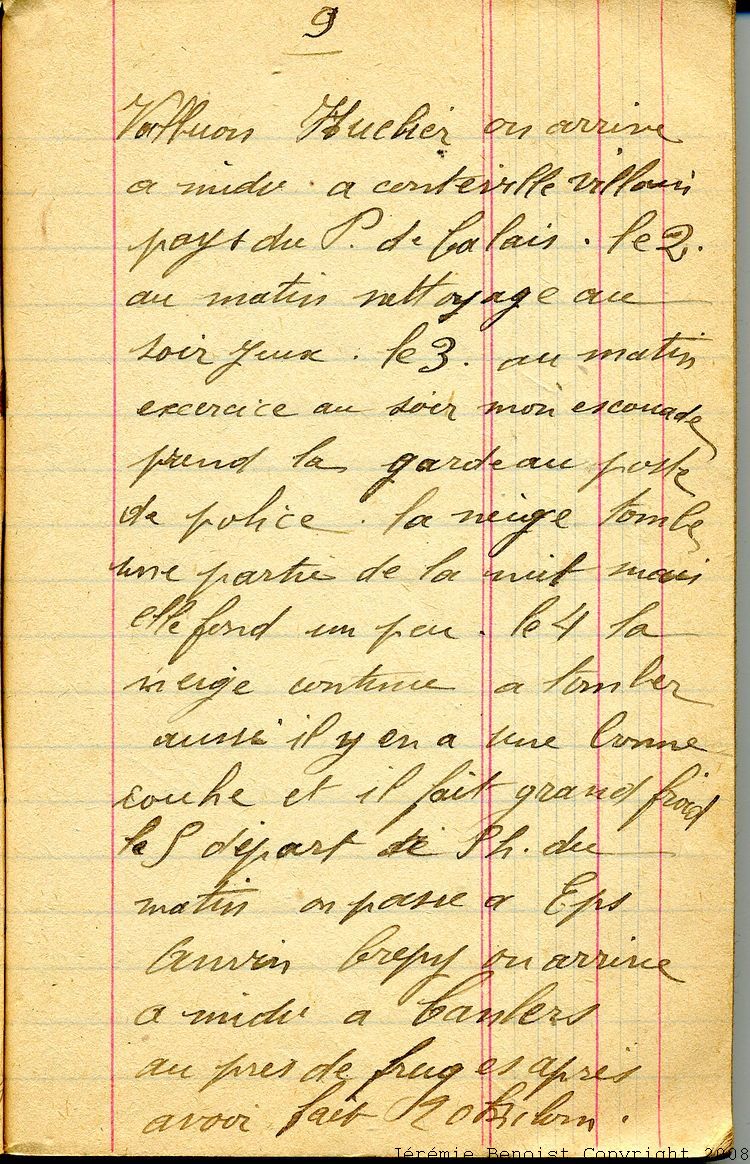 9
Valhuon Huchier on arrive
a midi a conteville villain
pays du P. de Calais. le 2.
au matin nettoyage au
soir jeux. le 3. au matin
exercice au soir mon escouade
prend la garde au poste
de police. la neige tombe
une partie de la nuit mais
elle fond un peu. le 4 la
neige continue a tomber
aussi il y en a une bonne
couche et il fait grand froid
le 5 départ de h. du
matin on passe a Eps
Anvin Crepy on arrive
a midi a Canlers
au pres de fruges apres
avoir fait 20 kilom.
Jérémie Benoist Copyright 2008